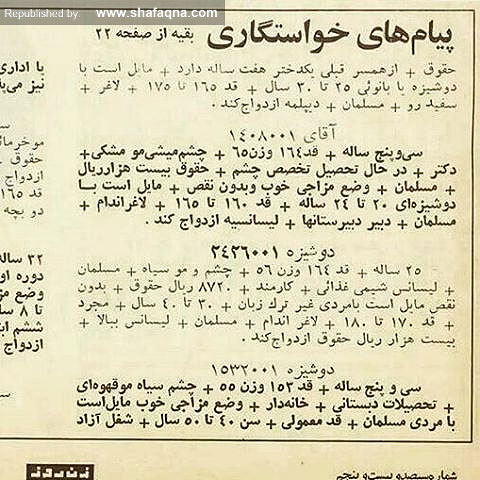 Republished by : www.shafaqna.com
پیام‌های خواستگاری بقیه از صفحه ۲۲
حقوق + ازهمسر قبلی یکدختر هفت ساله دارد + مایل است با
دوشیزه یا بانوئی ۲۵ تا ۳۰ سال + قد ۱۶۵ تا ۱۷۵ + لاغر +
سفید رو + مسلمان + دیپلمه ازدواج‌کند.
آقای ۱۴۰۸۰۰۱
سی‌وپنج ساله + قد۱۶۴ وزن۶۵ + چشم‌میشی‌مو مشکی+
دکتر + در حال تحصیل تخصص چشم + حقوق بیست هزارریال
+ مسلمان + وضع مزاجی خوب وبدون نقص + مایل است بـا
دوشیزه‌ای ۲۰ تا ۲۴ ساله + قد ۱۶۰ تا ۱۶۵ + لاغراندام +
مسلمان + دبیر دبیرستانها + لیسانسیه ازدواج کند .
دوشیزه ۲۴۲۶۰۰۱
۲۵ ساله + قد ۱۶۴ وزن ۵۶ + چشم و مو سیاه + مسلمان
+ لیسانس شیمی غذائی + کارمند + ۸۷۲۰ ریال حقوق + بدون
نقص مایل است بامردی غیر ترك زبان + ۳۰ تا ۴۰ سال + مجرد
+ قد ۱۷۰ تا ۱۸۰ + لاغر اندام + مسلمان + لیسانس ببالا +
بیست هزار ریال حقوق ازدواج‌کند .
دوشیزه ۱۵۳۲۰۰۱
سی و پنج ساله + قد ۱۵۳ وزن ۵۵ + چشم سیاه موقهوه‌ای
+ تحصیلات دبستانی + خانه‌دار + وضع مزاجی خوب مایل‌است
با مردی مسلمان + قد معمولی + سن ۴۰ تا ۵۰ سال + شغل آزاد
با اداری
نیز می‌پذ
موخرمائ
حقوق
ازدواج
قد ۱۶۵
دو بچه
۳۲ ساله
دوره او
وضع مز
تا ۸ سا
ششم ابت
ازدواج
زن روز
شماره سیصدو بیست و پنجم